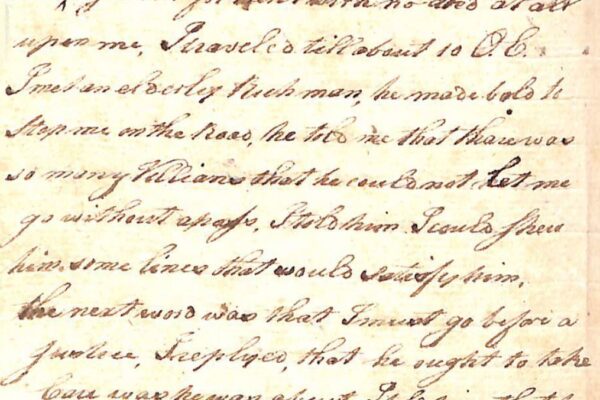 with no d at all
upon me, I traveled till about 10 O.C.
I met an elderley Rich man, he made bold to
stop me on the Road, he told me that thare was
so many Villians that he could not Let me
go without apass, I told him I could shew
him some lines that would satisfy him,
the next word was that I must go before a
Justice, I replyed, that he ought to take
Care was he was about